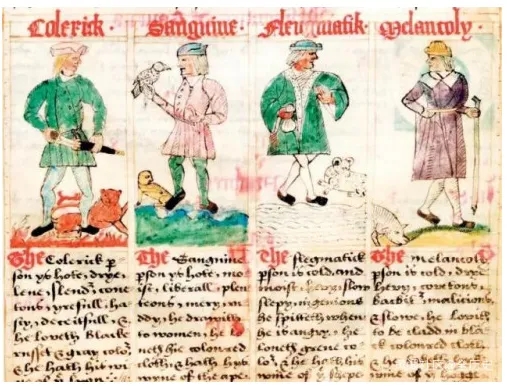 Colerick
Sanguine
Fleugmatik
Melancoly
The Colerick p
son ys hote, drye,
lene, slendr, coue
tous, yrefull, ha
sty, deceitfull, &
he loveth Blacke
russet & gray coloz
& he hath hit wi
ne of y lyon
The Sanguine
pson ys hote, mo
ise, liberall, plen
teous, mery, ru
ddy, he drawith
to women, he lo
ueth hie coloured
cloth & hath hys
wyne of the ape.
The flegmatik
pson is cold, and
moist, heuy, slow
slepy, ingenious
he spitteth when
he is angry, he
loueth grene co
loz, & he hath his
wine of y shepe
The melancoly
pson is cold, drye
hevy, covetous,
bacbit malicious,
& slowe, he louith
to be cladd in bla
k coloured cloth
& he hath his
wine of y hogge